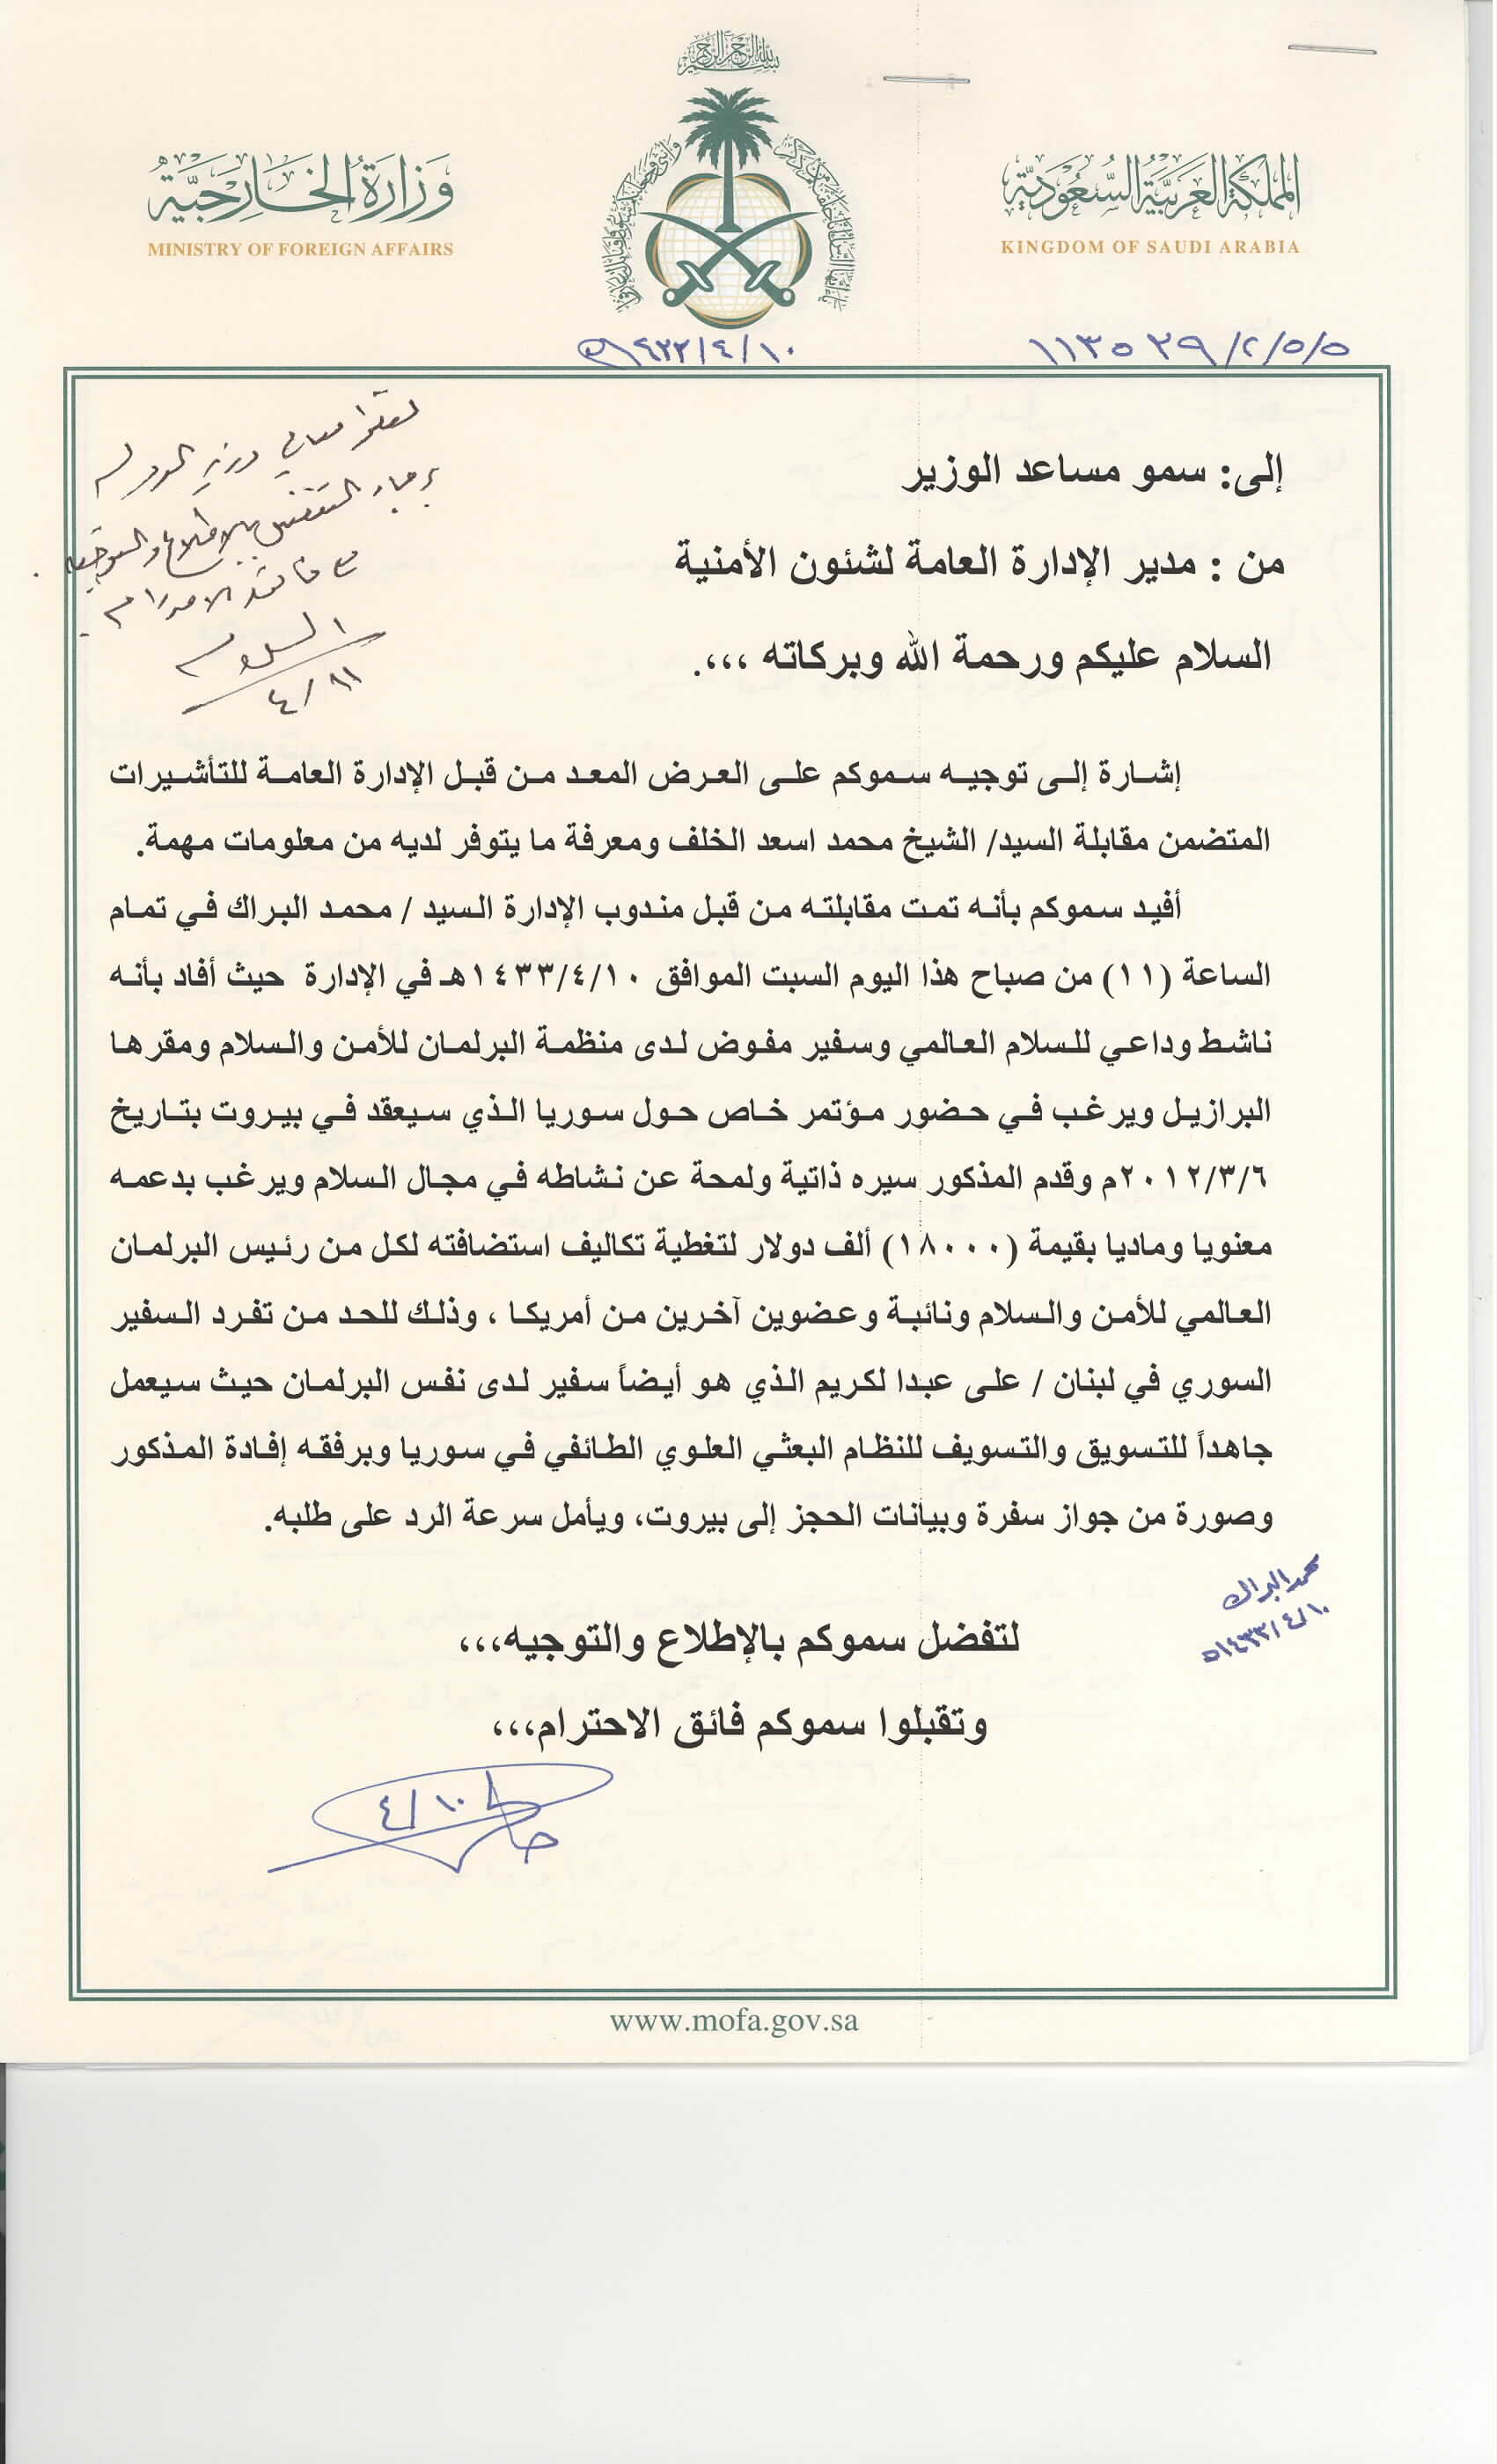 بسم الله الرحمن الرحيم
المملكة العربية السعودية
KINGDOM OF SAUDI ARABIA
وزارة الخارجية
MINISTRY OF FOREIGN AFFAIRS
١١٣٥٢٩/٢/٥/٥
١٤٣٣/٤/١٠هـ
إلى: سمو مساعد الوزير
من : مدير الإدارة العامة لشئون الأمنية
السلام عليكم ورحمة الله وبركاته ،،،.
معالي وزير الدولة
برجاء التفضل بالاطلاع والتوجيه
مع فائق الاحترام
٤/١١
إشارة إلى توجيه سموكم على العرض المعد من قبل الإدارة العامة للتأشيرات
المتضمن مقابلة السيد/ الشيخ محمد اسعد الخلف ومعرفة ما يتوفر لديه من معلومات مهمة.
أفيد سموكم بأنه تمت مقابلته من قبل مندوب الإدارة السيد / محمد البراك في تمام
الساعة (١١) من صباح هذا اليوم السبت الموافق ١٤٣٣/٤/١٠هـ في الإدارة حيث أفاد بأنه
ناشط وداعي للسلام العالمي وسفير مفوض لدى منظمة البرلمان للأمن والسلام ومقرها
البرازيل ويرغب في حضور مؤتمر خاص حول سوريا الذي سيعقد في بيروت بتاريخ
٢٠١٢/٣/٦م وقدم المذكور سيره ذاتية ولمحة عن نشاطه في مجال السلام ويرغب بدعمه
معنويا وماديا بقيمة (١٨٠٠٠) ألف دولار لتغطية تكاليف استضافته لكل من رئيس البرلمان
العالمي للأمن والسلام ونائبة وعضوين آخرين من أمريكا ، وذلك للحد من تفرد السفير
السوري في لبنان / على عبدا لكريم الذي هو أيضاً سفير لدى نفس البرلمان حيث سيعمل
جاهداً للتسويق والتسويف للنظام البعثي العلوي الطائفي في سوريا وبرفقه إفادة المذكور
وصورة من جواز سفرة وبيانات الحجز إلى بيروت، ويأمل سرعة الرد على طلبه.
محمد البراك
١٤٣٣/٤/١٠هـ
لتفضل سموكم بالإطلاع والتوجيه،،،
وتقبلوا سموكم فائق الاحترام،،،
٤/١٠
www.mofa.gov.sa